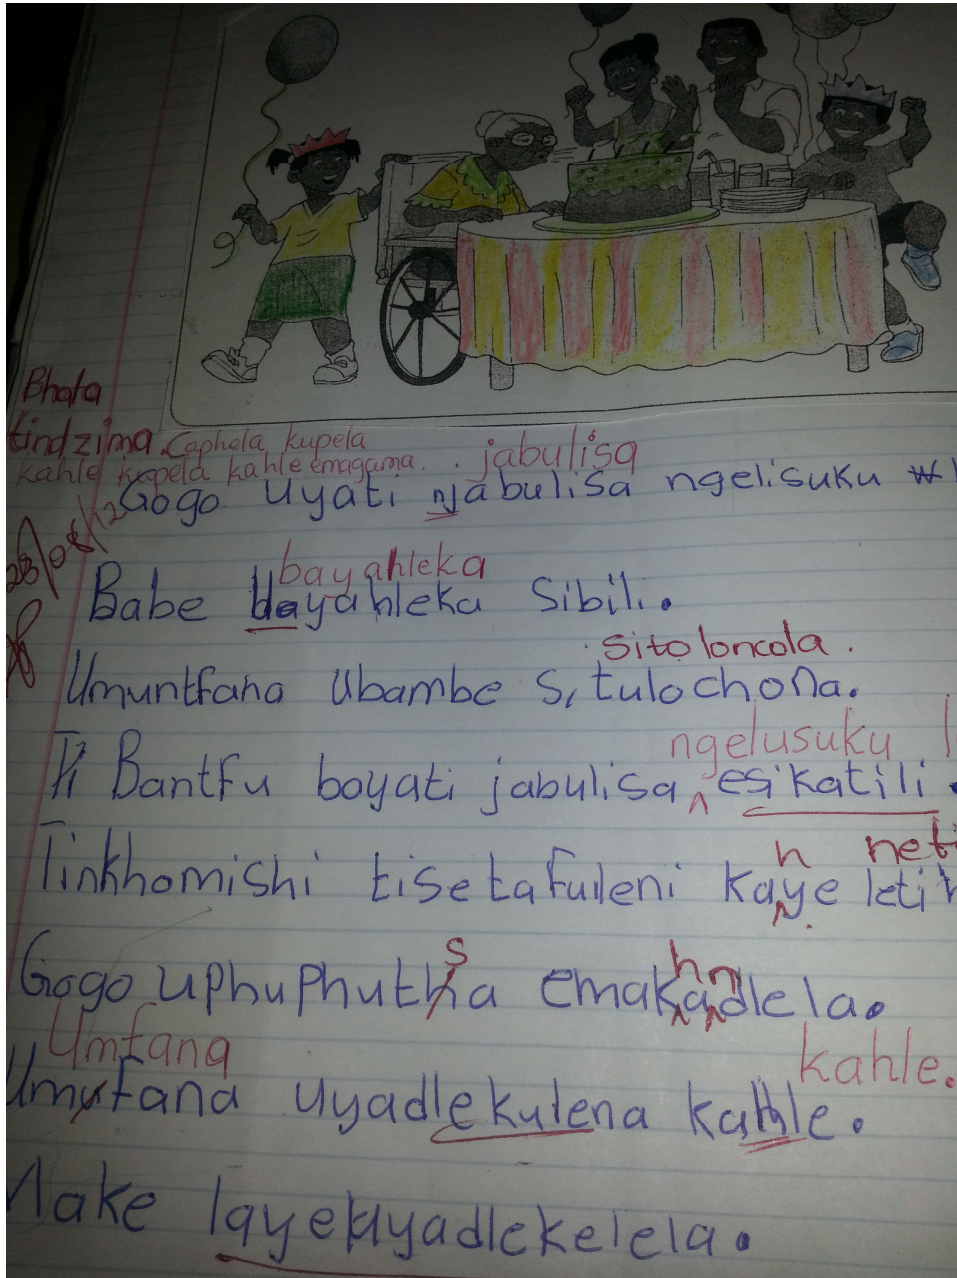 Bhala
tindzima. Caphela kupela
kahle kopela kahle emagama. jabulisa
Gogo uyati njabulisa ngelisuku
bayahleka
Babe bayahleka sibili.
sitoloncola.
Umuntfana ubambe situlochona.
ngelusuku
Bantfu boyati jabulisa esikatili.
h neti
Tinkhomishi tisetafuleni kaye leti
s h n
Gogo uphuphutha emakadlela.
Umfana kahle.
Umufana uyadlekulena kahle.
Make layekuyadlekelela.